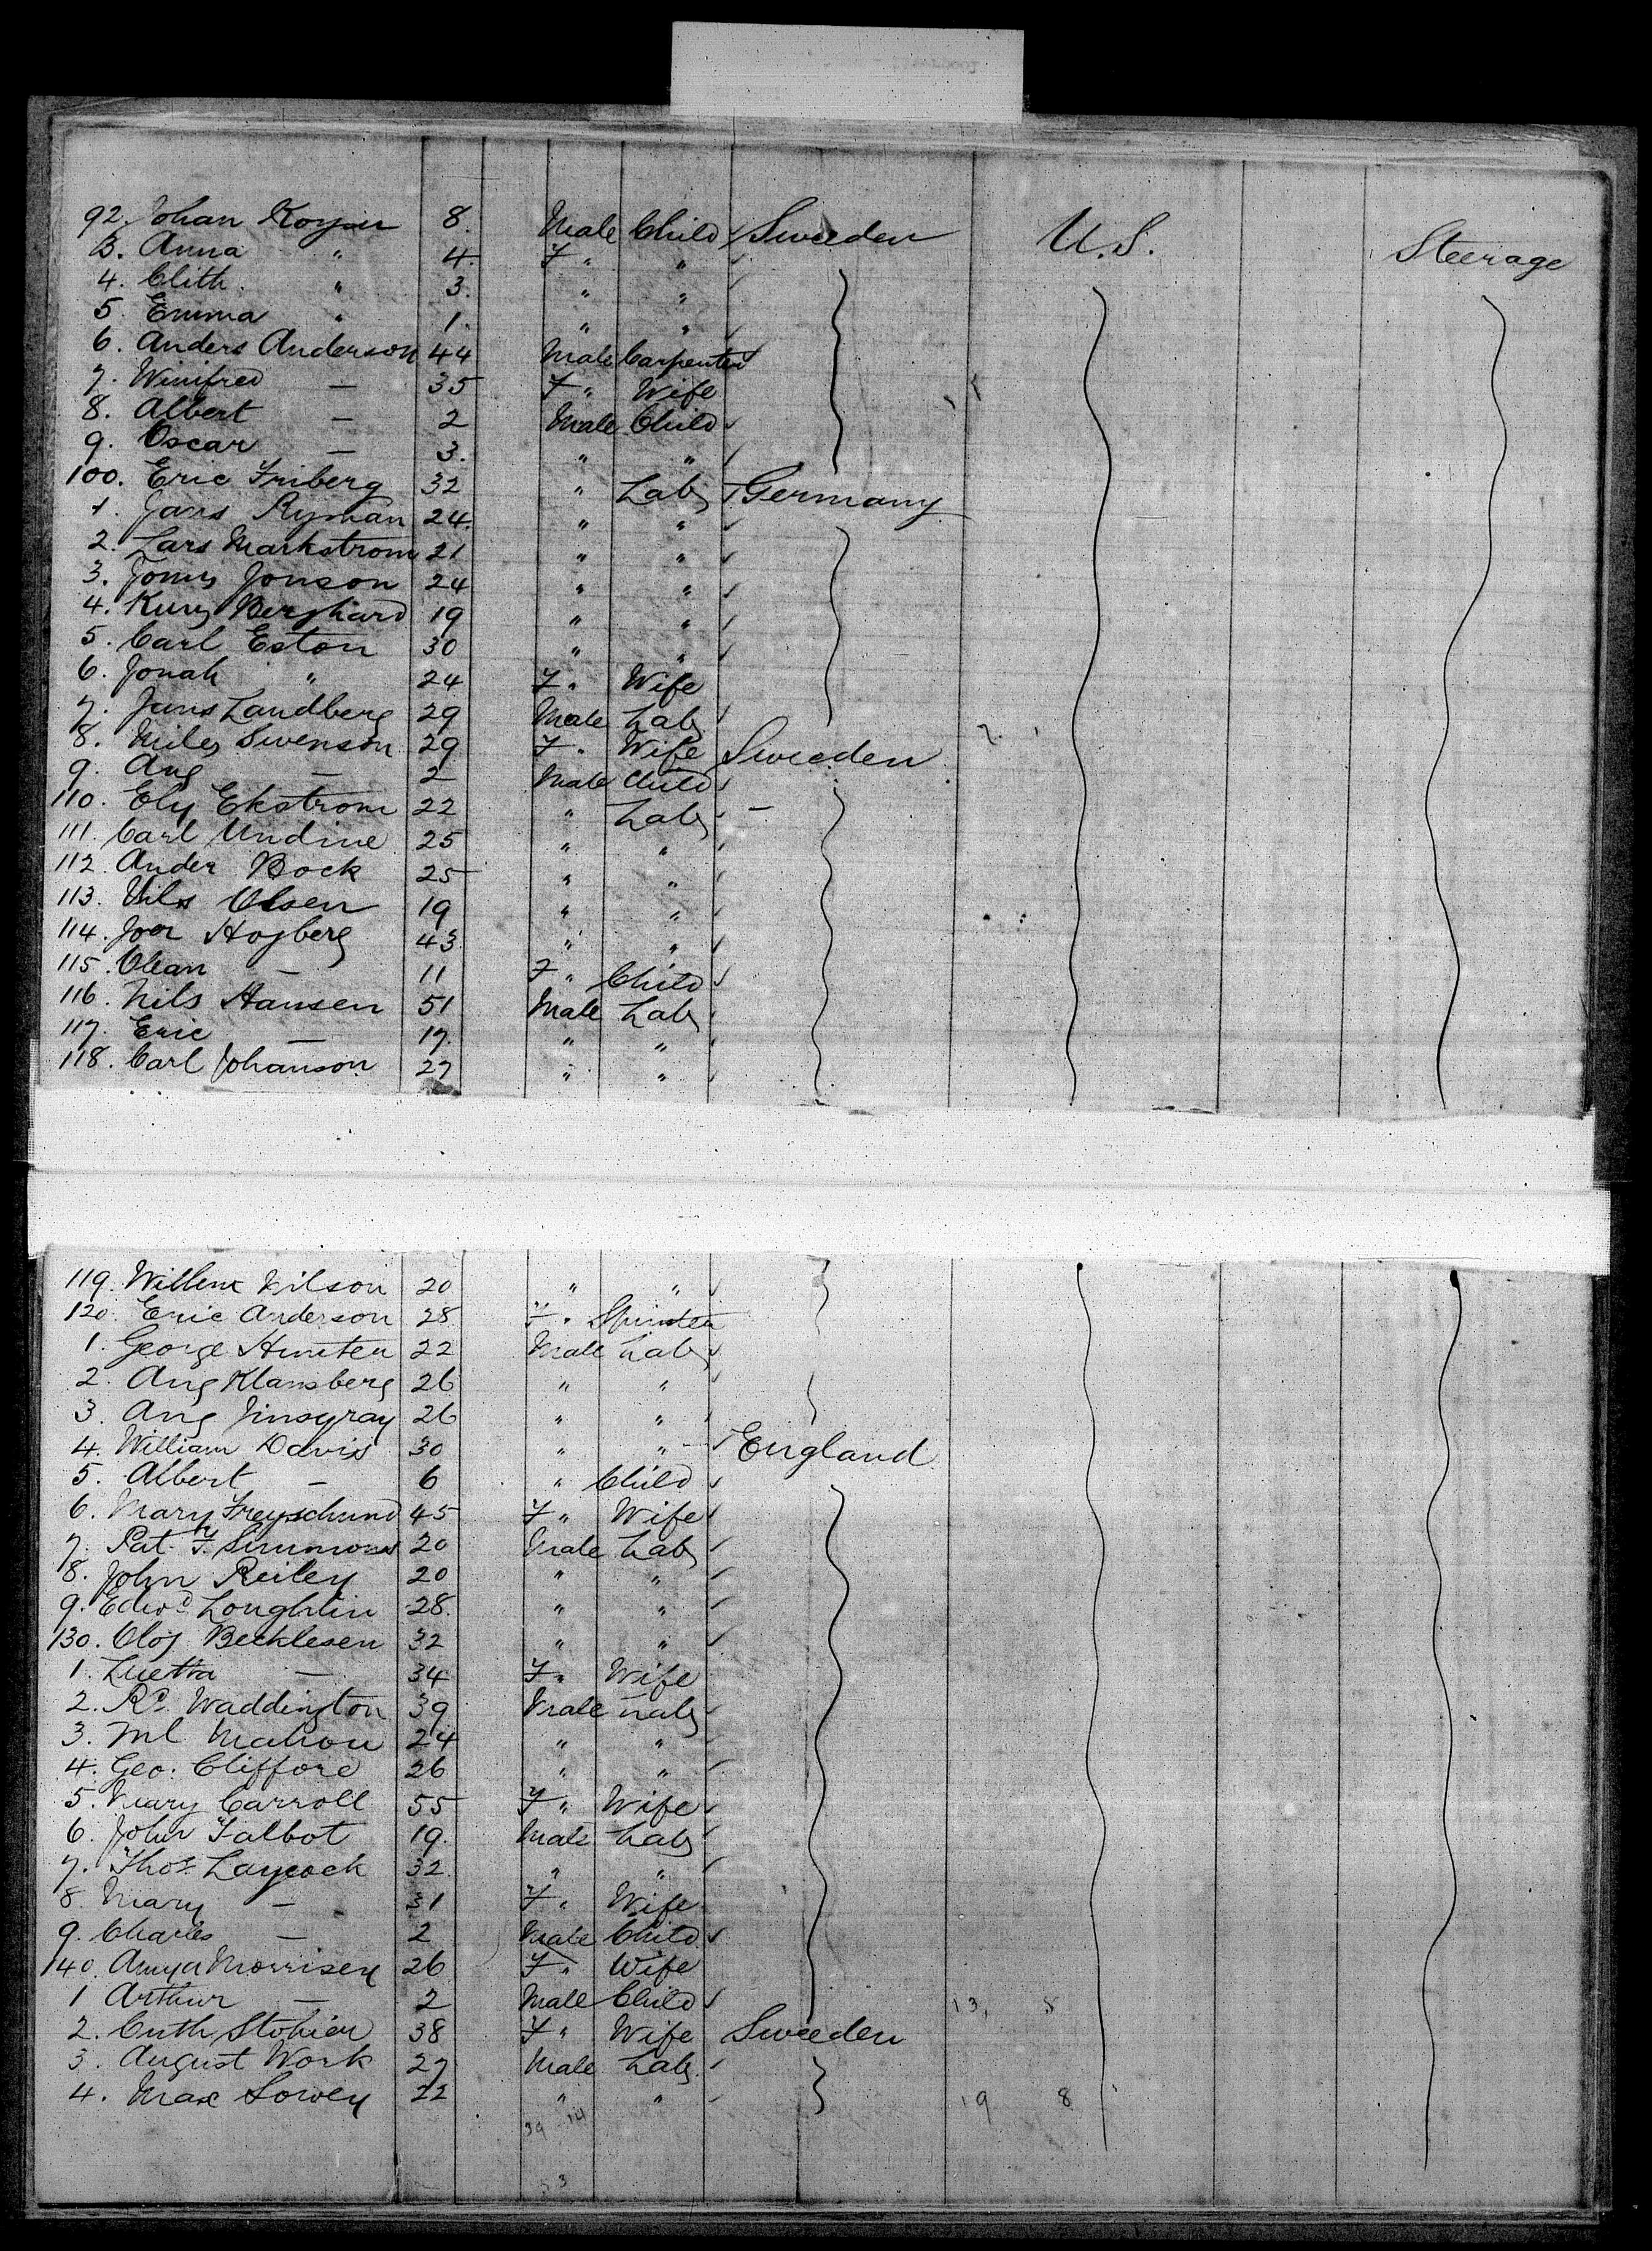 92. Johan Koyser 8. Male Child Sweeden U.S. Steerage
B. Anna " 4. F " "
4. Clith. " 3. " "
5. Emma " 1. " "
6. Anders Anderson 44 Male Carpenter
7. Winifred — 35 F " Wife
8. Albert — 2 Male Child
9. Oscar — 3. " "
100. Eric Friberg 32 " Labr Germany
1. Ryman 24. " "
2. Lars Markstrom 21 " "
3. Jonus Jonson 24 " "
4. Berghard 19 " "
5. Carl Eston 30 " "
6. Jonah " 24 F " Wife
7. Jans Landberg 29 Male Labr
8. Miles Swenson 29 F " Wife Sweeden
9. Aug — 2 Male Child
110. Ely Ekstrom 22 " Labr
111. Carl Undine 25 " "
112. Ander Bock 25 " "
113. Nils Olsen 19 " "
114. Joer Hojberg 43 " "
115. Olean — 11 F " Child
116. Nils Hansen 51 Male Labr
117. Eric — 17. " "
118. Carl Johanson 27 " "
119. Willem Nilson 20 " "
120. Eric Anderson 28 F " Spinster
1. George Hunter 22 Male Labr
2. Aug Klansberg 26 " "
3. Aug 26 " "
4. William Davis 30 " " England
5. Albert — 6 " Child
6. Mary Freyschund 45 F " Wife
7. Pat. F. Simmons 20 Male Labr
8. John Reiley 20 " "
9. Edwd Loughlin 28. " "
130. Oloj Becklesen 32 " "
1. Luetta — 34 F " Wife
2. Rd. Waddington 39 Male Labr
3. Ml Mahon 24 " "
4. Geo. Clifford 26 " "
5. Mary Carroll 55 F " Wife
6. John Talbot 19. Male Labr
7. Thos. Laycock 32 " "
8. Mary — 31 F " Wife
9. Charles — 2 Male Child
140. Morrisey 26 F " Wife
1 Arthur — 2 Male Child 13, 5
2. Stohier 38 F " Wife Sweeden
3. August Work 27 Male Labr
4. Max Lowey 22 " " 19 8
39 14
53